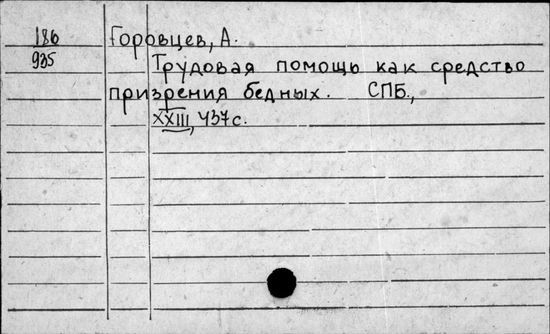 186 Горовцев, А.
935 Трудовая помощь как средство
призрения бедных. СПБ.,
XXIII, 437 с.